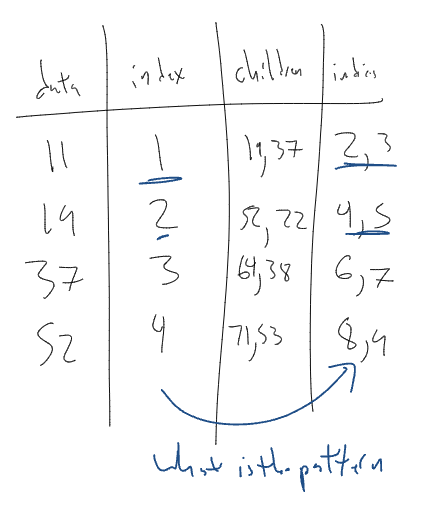 data index children indices
11 1 19,37 2,3
19 2 52,22 4,5
37 3 64,38 6,7
52 4 71,53 8,9
what is the pattern